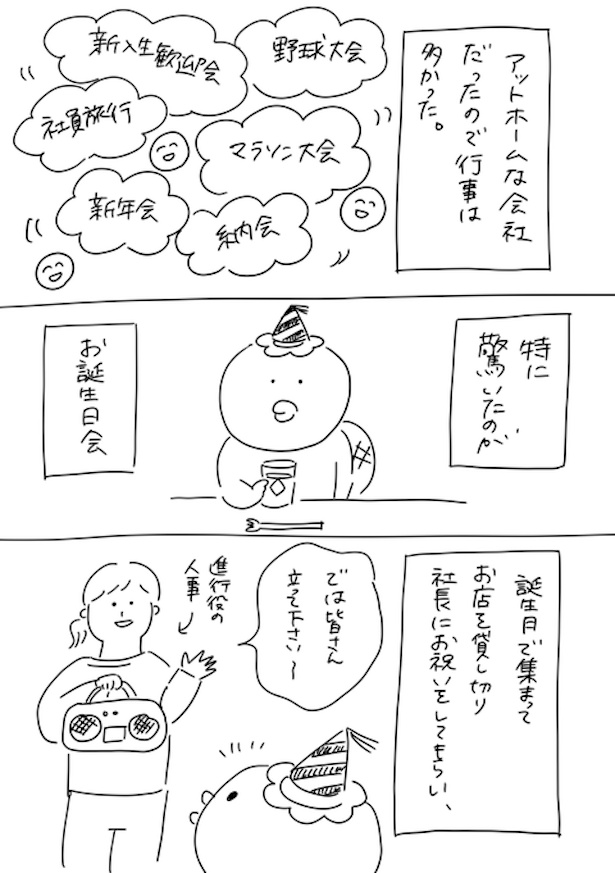 アットホームな会社
だったので行事は
多かった。
野球大会
新入生歓迎会
社員旅行
マラソン大会
新年会
納会
特に
驚いたのが
お誕生日会
誕生月で集まって
お店を貸し切り
社長にお祝いをしてもらい、
では皆さん
立って下さい〜
進行役の
人事